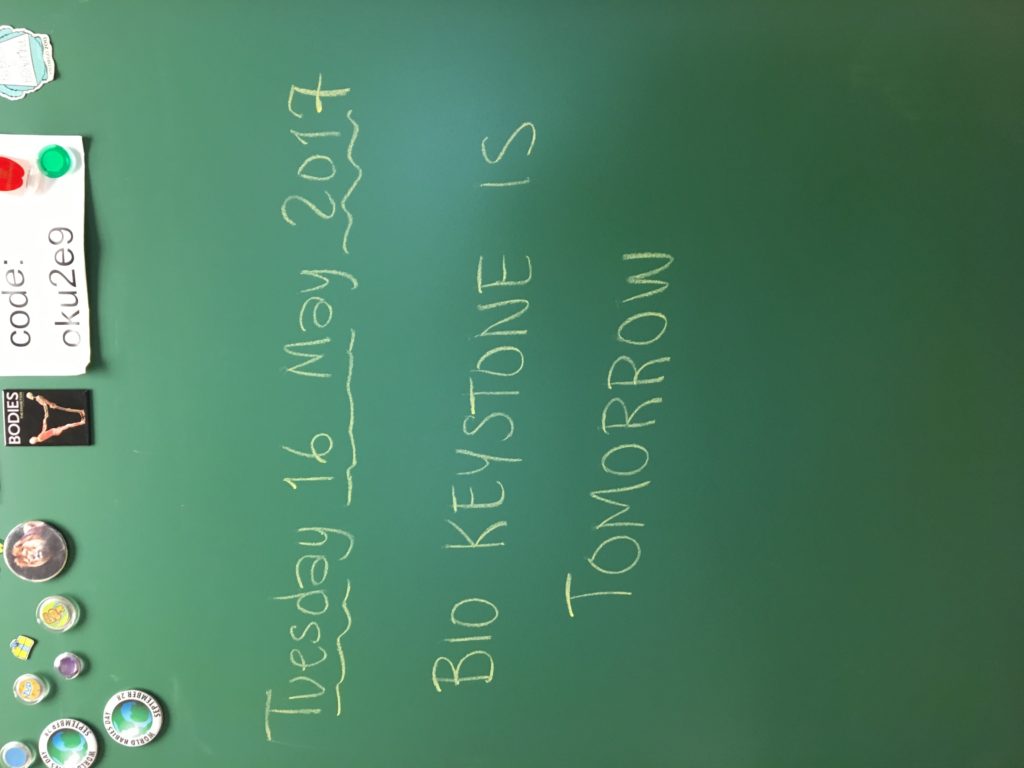 code:
oku2e9
BODIES
SEPTEMBER 28
WORLD RABIES DAY
SEPTEMBER
Tuesday 16 May 2017
BIO KEYSTONE IS
TOMORROW